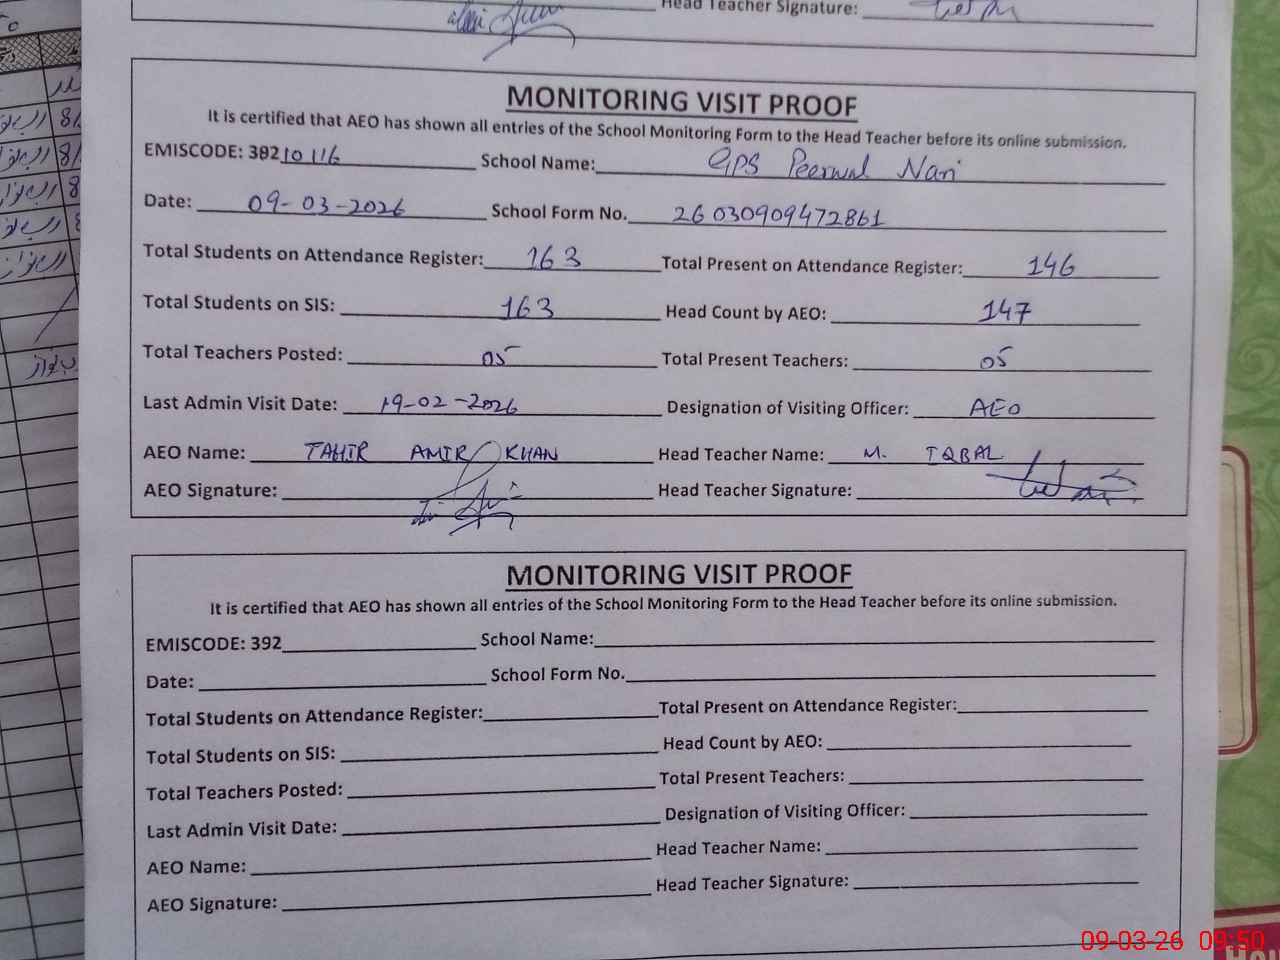 Head Teacher Signature:
MONITORING VISIT PROOF
It is certified that AEO has shown all entries of the School Monitoring Form to the Head Teacher before its online submission.
EMISCODE: 39210116 School Name: GPS Peerwal Nari
Date: 09-03-2026 School Form No. 26030909472861
Total Students on Attendance Register: 163 Total Present on Attendance Register: 146
Total Students on SIS: 163 Head Count by AEO: 147
Total Teachers Posted: 05 Total Present Teachers: 05
Last Admin Visit Date: 19-02-2026 Designation of Visiting Officer: AEO
AEO Name: TAHIR AMIR KHAN Head Teacher Name: M. IQBAL
AEO Signature: Head Teacher Signature:
MONITORING VISIT PROOF
It is certified that AEO has shown all entries of the School Monitoring Form to the Head Teacher before its online submission.
EMISCODE: 392 School Name:
Date: School Form No.
Total Students on Attendance Register: Total Present on Attendance Register:
Total Students on SIS: Head Count by AEO:
Total Teachers Posted: Total Present Teachers:
Last Admin Visit Date: Designation of Visiting Officer:
AEO Name: Head Teacher Name:
AEO Signature: Head Teacher Signature:
09-03-26 09:50